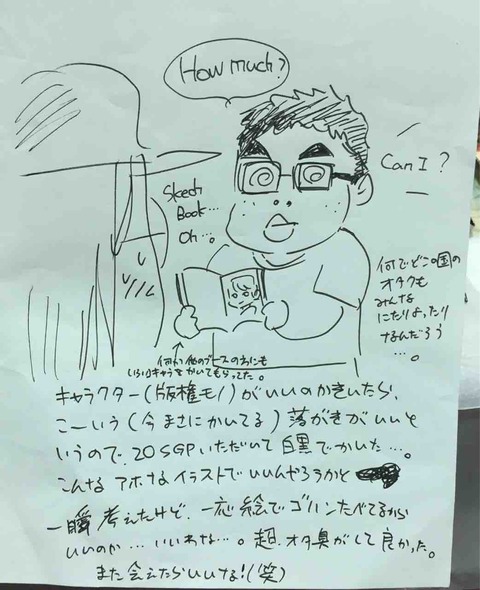 How much?
Can I?
Skech
Book…
Oh…。
何でどこの国の
オタクも
みんな
にたりよったり
なんだろう
…。
何か他のブースのおにも
キャラをかいてもらってた。
キャラクター(版権モノ)がいいのかきいたら、
こーいう(今まさにかいてる)落がきがいいと
いうので、20SGPいただいて白黒でかいた…。
こんなアホなイラストでいいんやろうかと
一瞬考えたけど、一応絵でゴハンたべてるから
いいのか…いいわな…。超オタ臭がして良かった。
また会えたらいいな!(笑)